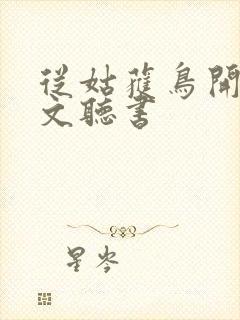 從姑蘿鳥開
文聽書
星岑